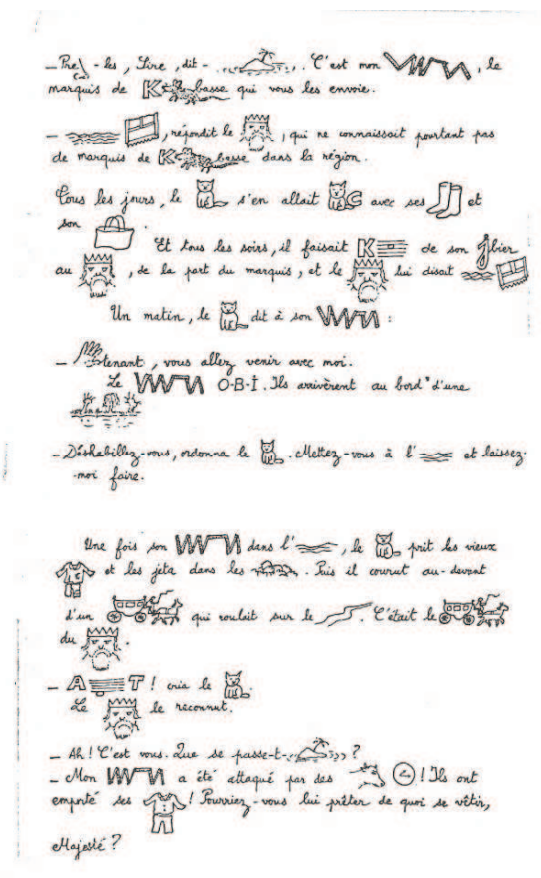 – Pre -les, Sire, dit- . C'est mon , le
marquis de K basse qui vous les envoie.
– , répondit le , qui ne connaissait pourtant pas
de marquis de K basse dans la région.
Tous les jours, le s'en allait C avec ses et
son .
Et tous les soirs, il faisait K de son Jbier
au , de la part du marquis, et le lui disait
Un matin, le dit à son :
– tenant, vous allez venir avec moi.
Le O.B.I. Ils arrivèrent au bord d'une
– Déshabillez-vous, ordonna le . Mettez-vous à l' et laissez-
moi faire.
Une fois son dans l' , le prit les vieux
et les jeta dans les . Puis il courut au-devant
d'un qui roulait sur le . C'était le
du .
– A T ! cria le .
Le le reconnut.
– Ah ! C'est vous. Que se passe-t- ?
– Mon a été attaqué par des ! Ils ont
emporté ses ! Pourriez-vous lui prêter de quoi se vêtir,
Majesté ?